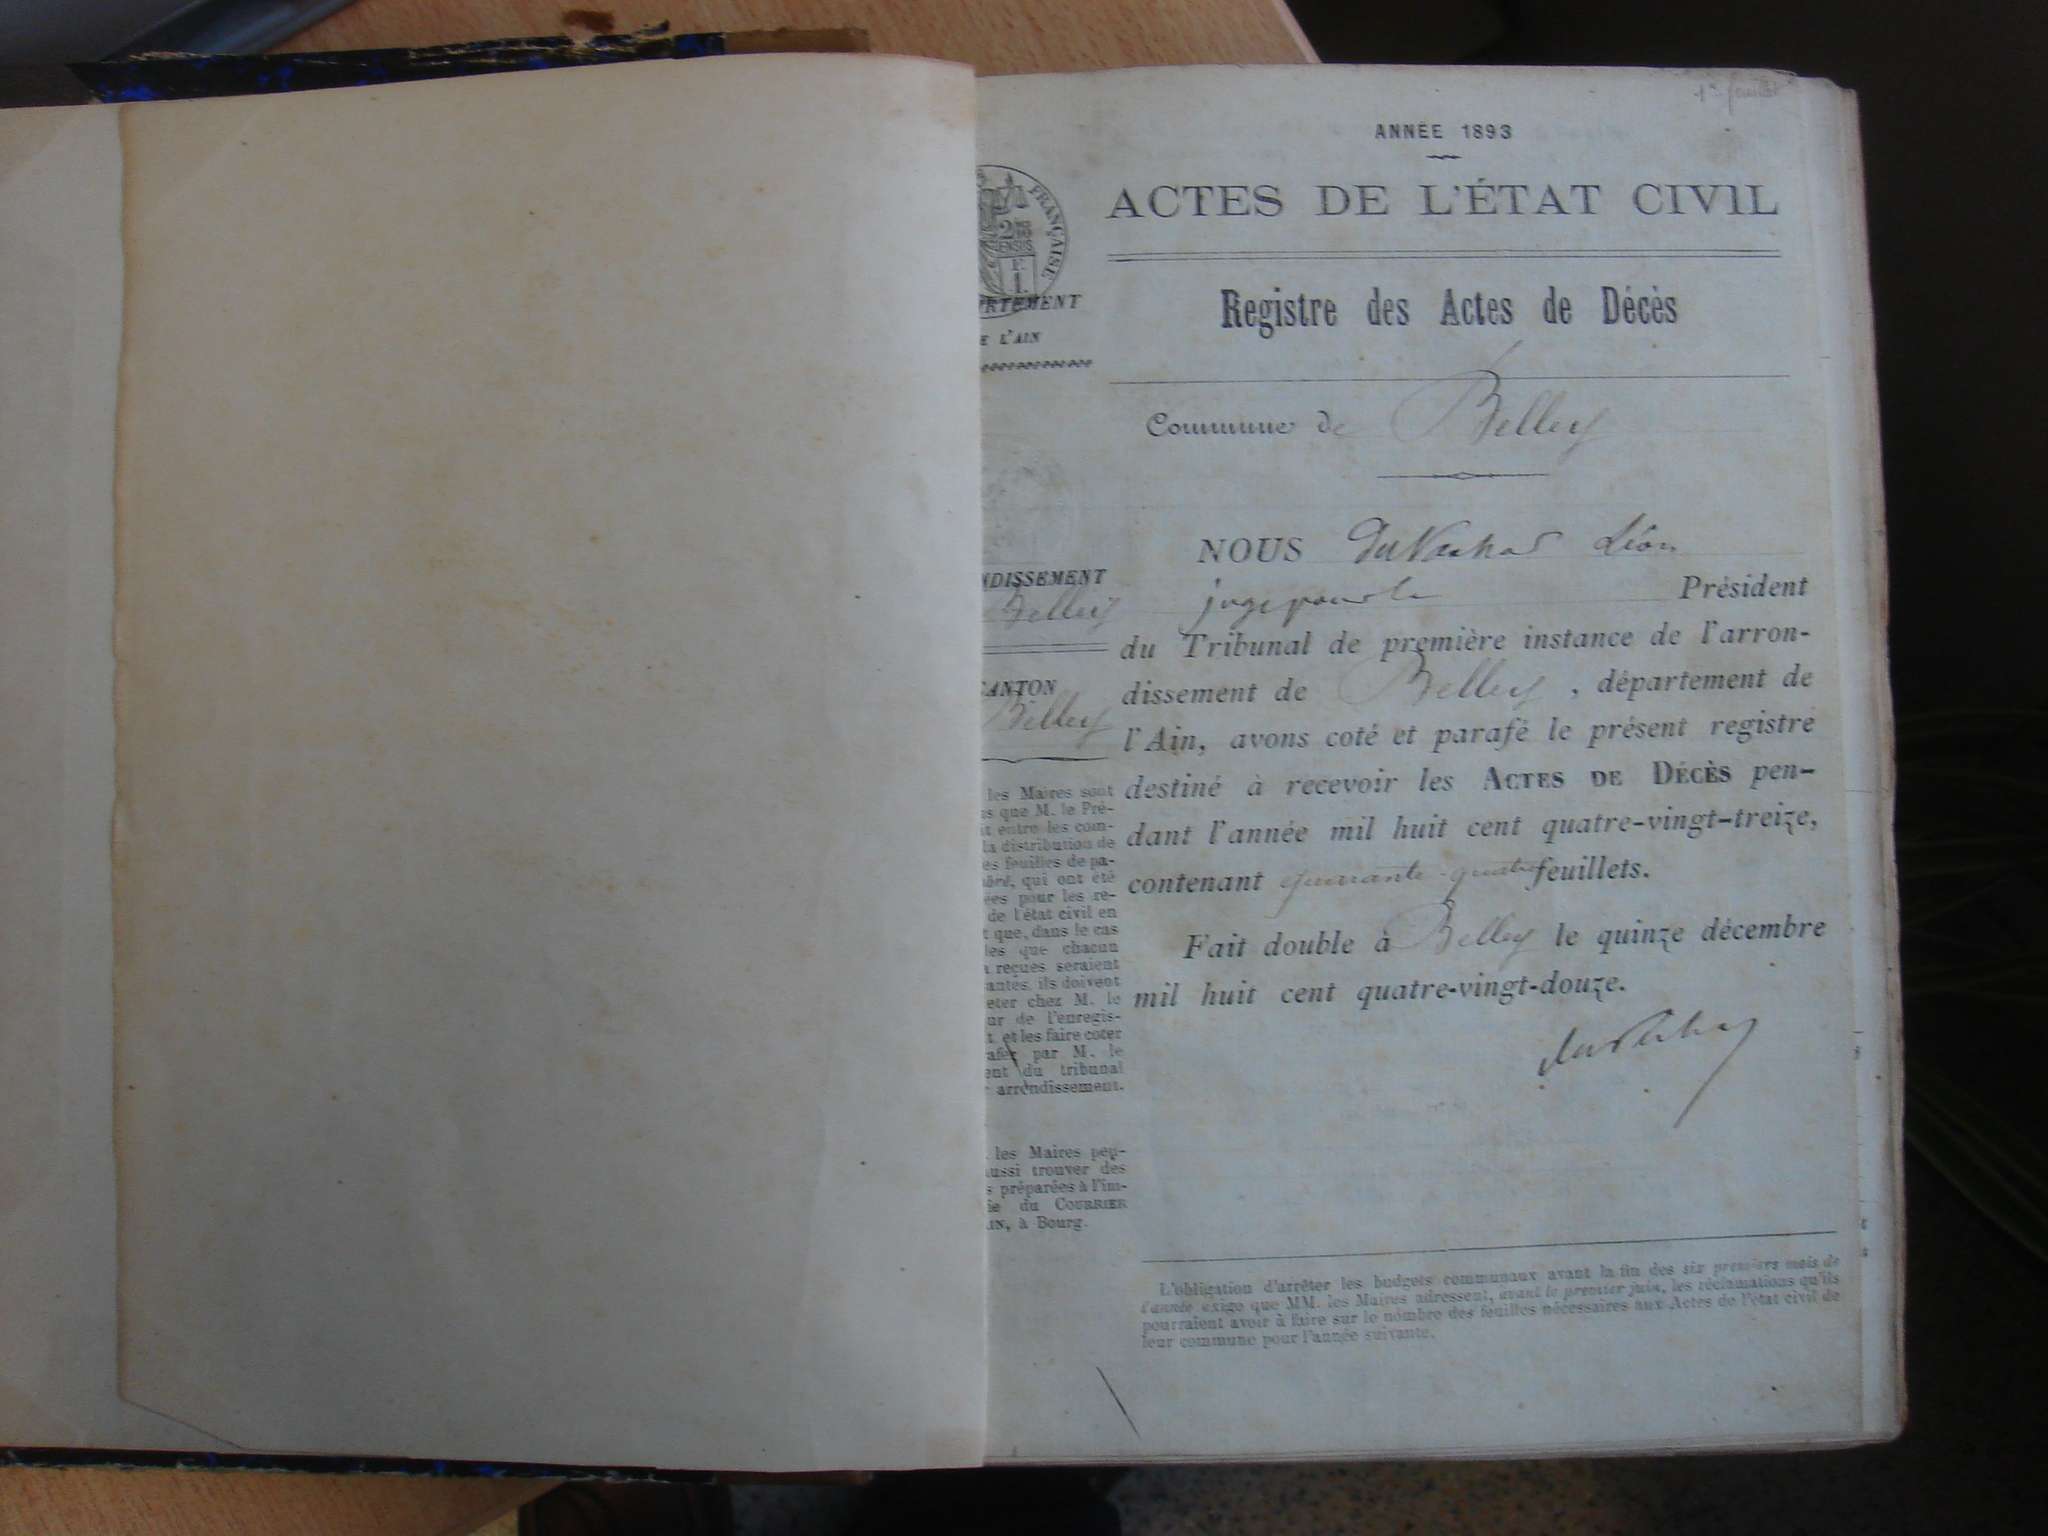 1er feuillet
ANNÉE 1893
ACTES DE L'ÉTAT CIVIL
FRANÇAISE
Registre des Actes de Décès
Commune de Belley
NOUS Léon
juge pour le Président
du Tribunal de première instance de l'arron-
dissement de Belley, département de
l'Ain, avons coté et parafé le présent registre
destiné à recevoir les ACTES DE DÉCÈS pen-
dant l'année mil huit cent quatre-vingt-treize,
contenant quarante-quatre feuillets.
Fait double à Belley le quinze décembre
mil huit cent quatre-vingt-douze.
RTEMENT
E L'AIN
NDISSEMENT
Belley
CANTON
Belley
les Maires sont
que M. le Pré-
entre les com-
la distribution de
es feuilles de pa-
bré, qui ont été
ées pour les re-
de l'état civil en
t que, dans le cas
les que chacun
reçues seraient
antes, ils doivent
eter chez M. le
ur de l'enregis-
t, et les faire coter
afer par M. le
ent du tribunal
arrondissement.
les Maires peu-
aussi trouver des
s préparées à l'im-
ie du COURRIER
AIN, à Bourg.
L'obligation d'arrêter les budgets communaux avant la fin des six premiers mois de
l'année exige que MM. les Maires adressent, avant le premier juin, les réclamations qu'ils
pourraient avoir à faire sur le nombre des feuilles nécessaires aux Actes de l'état civil de
leur commune pour l'année suivante.